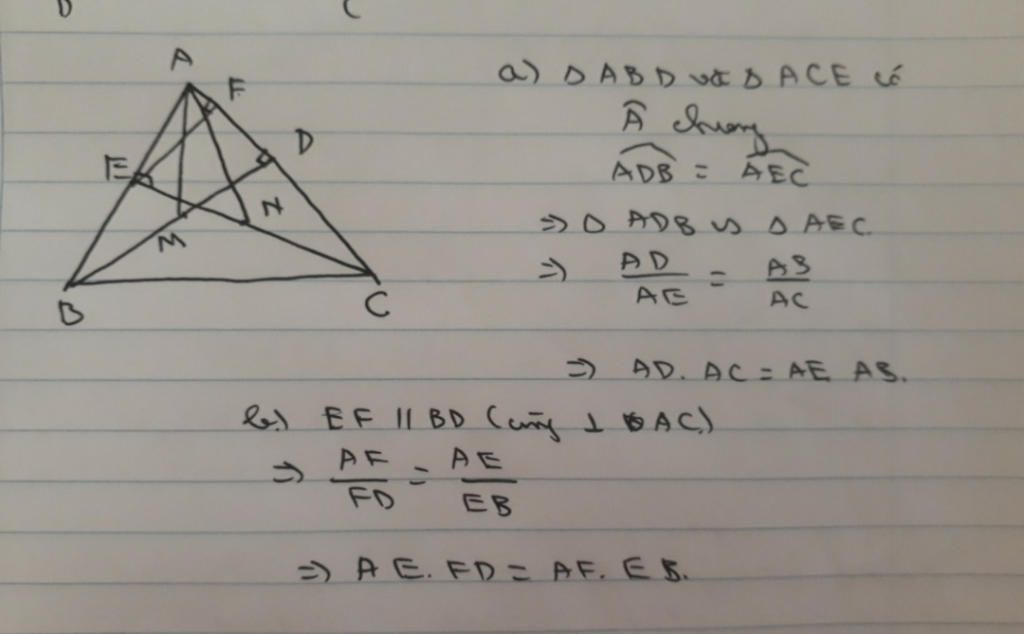 D C
A
F
D
E
N
M
B
C
a) Δ ABD và Δ ACE có
Â chung
ADB = AEC
=> Δ ADB ∽ Δ AEC.
=> AD/AE = AB/AC
=> AD. AC = AE AB.
b.) EF // BD (cùng ⊥ AC)
=> AF/FD = AE/EB
=> AE. FD = AF. EB.